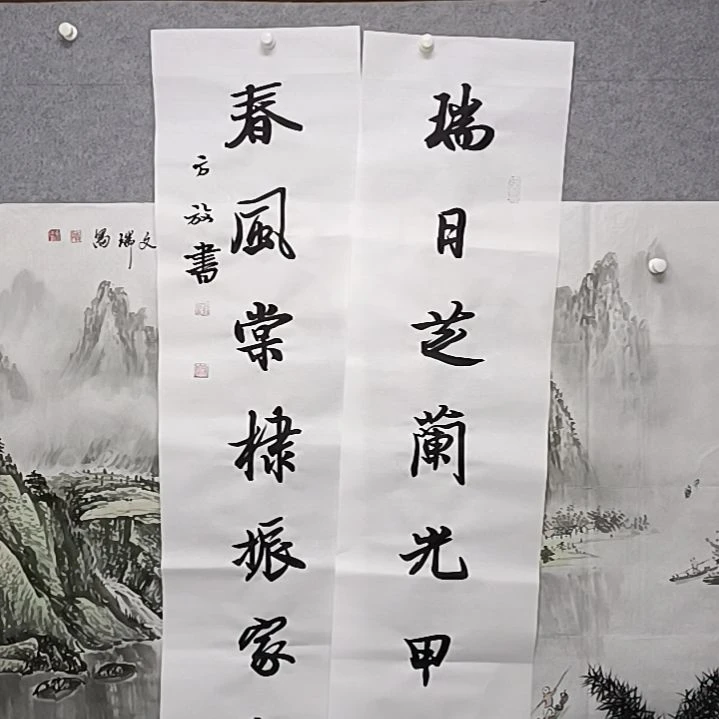 瑞日芝蘭光甲
春風棠棣振家
方放書
文瑞